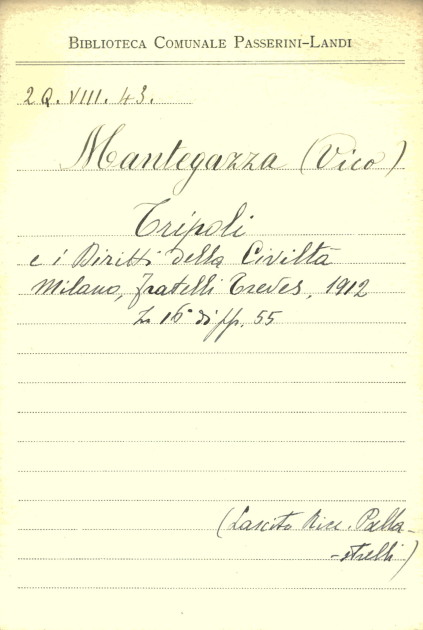 BIBLIOTECA COMUNALE PASSERINI-LANDI
2Q. VIII. 43.
Mantegazza (Vico)
Tripoli
e i Diritti della Civiltà
Milano, Fratelli Treves, 1912
In 16° di pp. 55
(Lascito Ricc. Palla-
-strelli)